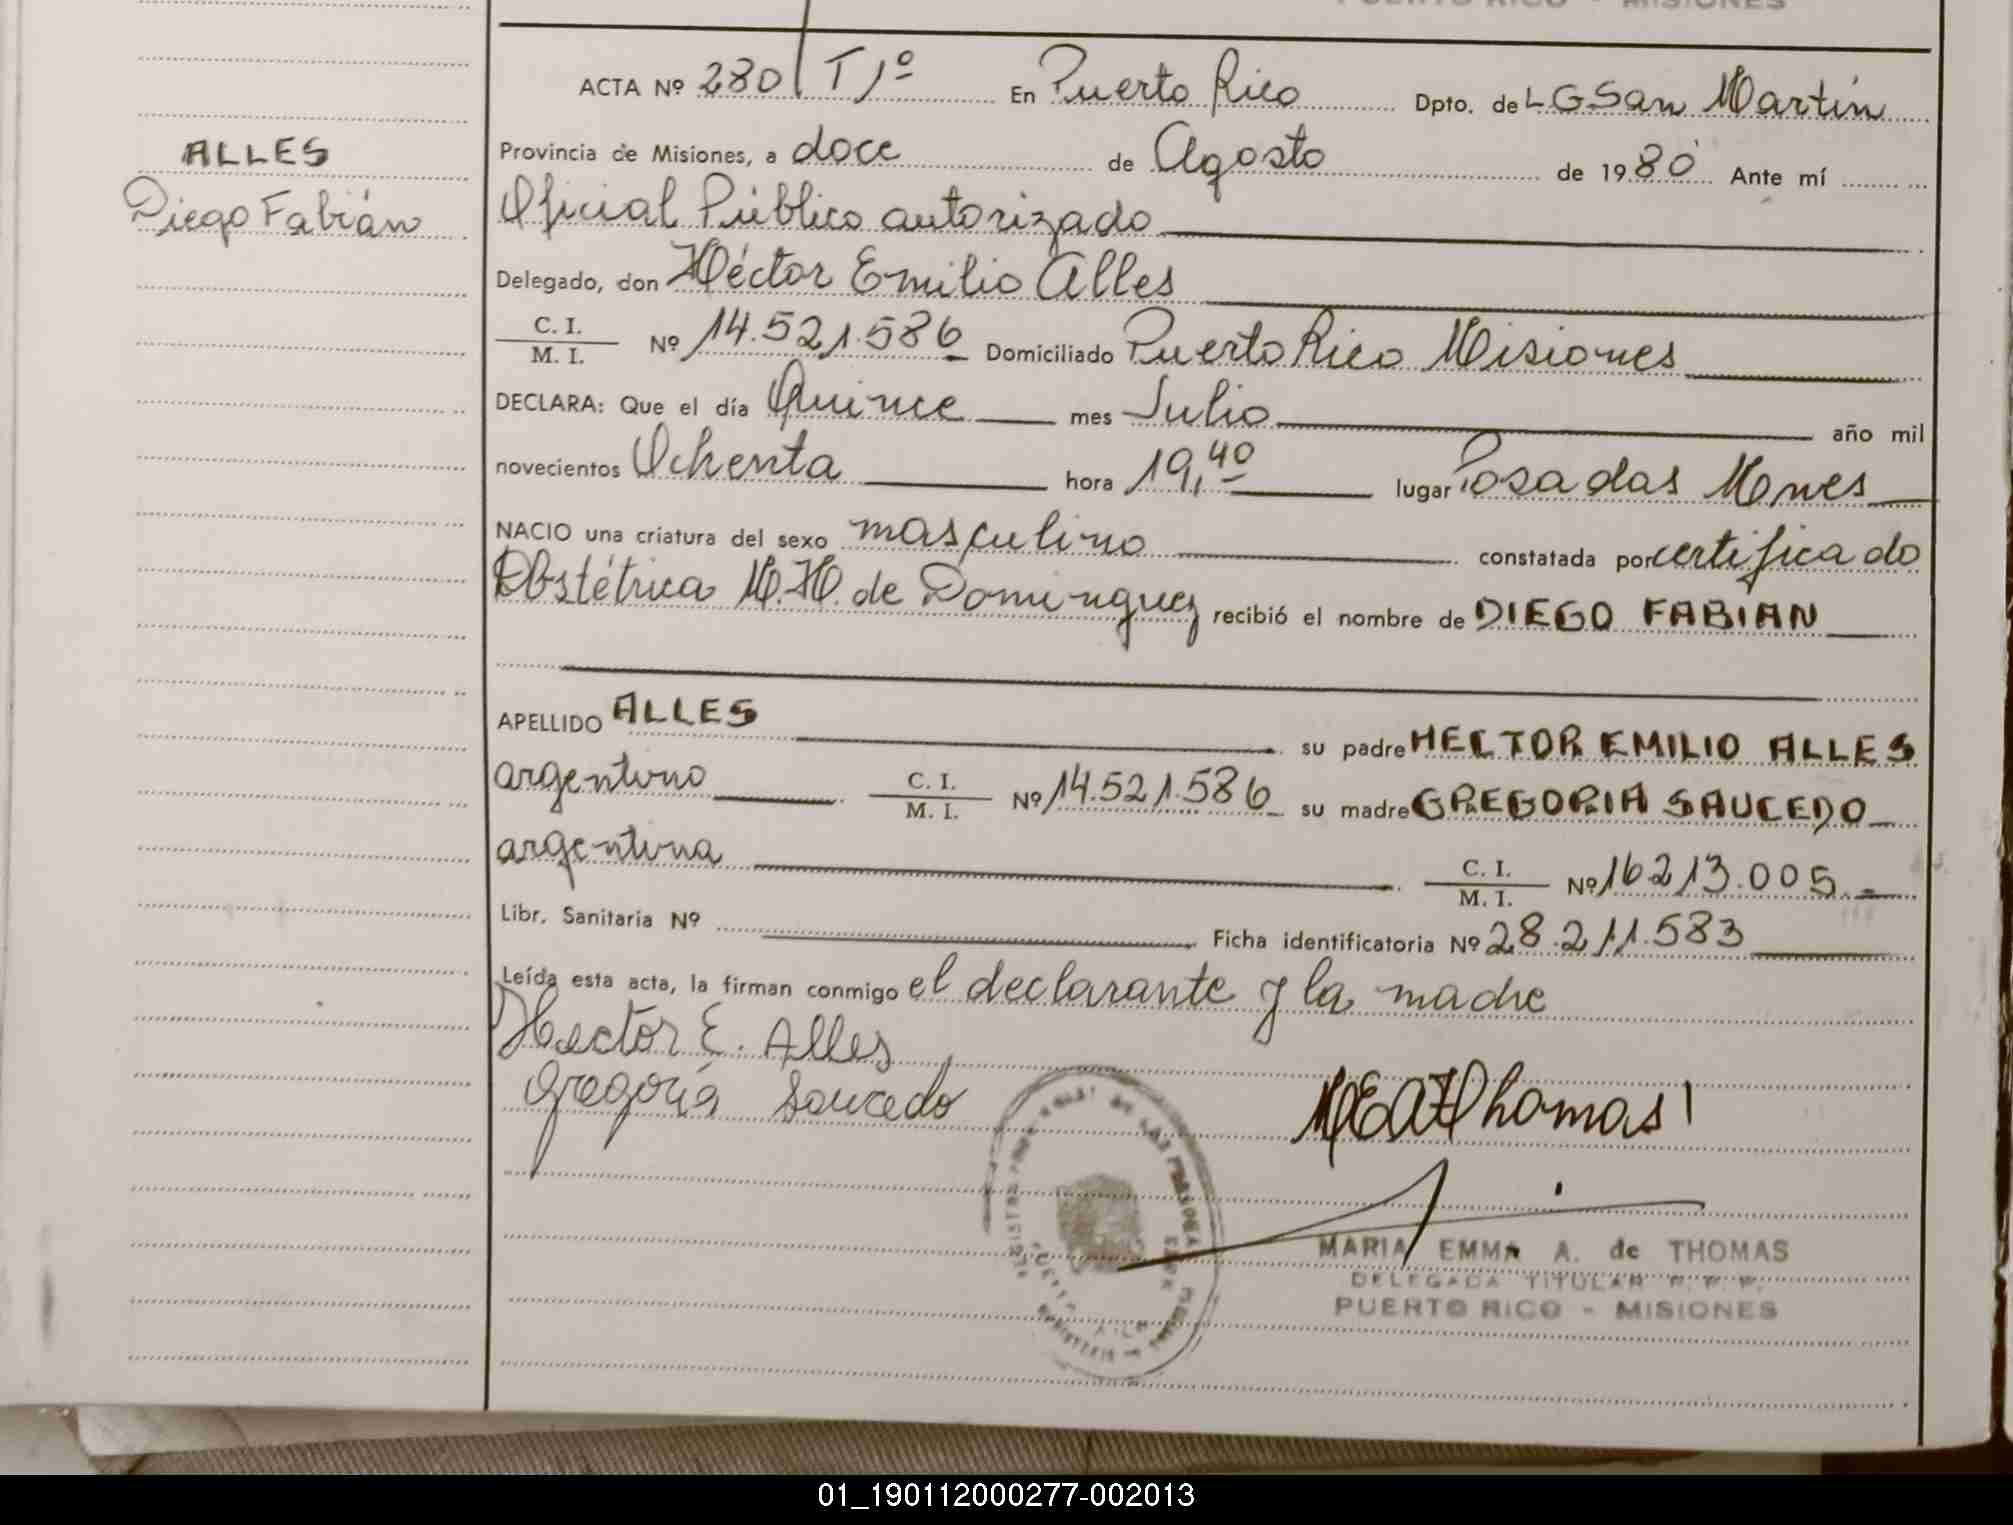 PUERTO RICO - MISIONES
ACTA Nº 280 T 1º En Puerto Rico Dpto. de L G San Martín
ALLES
Diego Fabián
Provincia de Misiones, a doce de Agosto de 1980 Ante mí
Oficial Público autorizado
Delegado, don Héctor Emilio Alles
C. I.
M. I. Nº 14.521.586 Domiciliado Puerto Rico Misiones
DECLARA: Que el día Quince mes Julio año mil
novecientos Ochenta hora 19,40 lugar Posadas Mnes
NACIO una criatura del sexo masculino constatada por certificado
Obstétrica M.H. de Dominguez recibió el nombre de DIEGO FABIAN
APELLIDO ALLES su padre HECTOR EMILIO ALLES
argentino C. I. M. I. Nº 14.521.586 su madre GREGORIA SAUCEDO
argentina C. I. M. I. Nº 16213.005.
Libr. Sanitaria Nº Ficha identificatoria Nº 28.211.583
Leída esta acta, la firman conmigo el declarante y la madre
Hector E. Alles
Gregoria Saucedo
MEAThomas
MARIA EMMA A. de THOMAS
DELEGADA TITULAR
PUERTO RICO - MISIONES
01_190112000277-002013